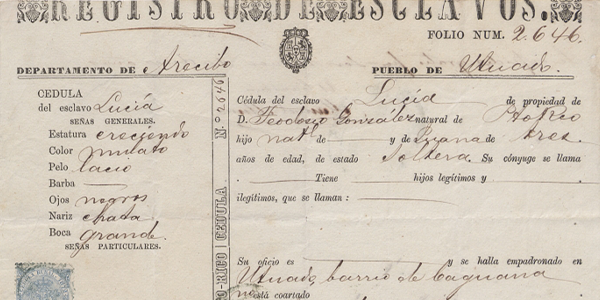 REGISTRO DE ESCLAVOS.
FOLIO NUM. 2.646.
DEPARTAMENTO DE Arecibo
PUEBLO DE Utuado.
CEDULA
del esclavo Lucía
SEÑAS GENERALES.
Estatura creciendo
Color mulato
Pelo lacio
Barba —
Ojos negros
Nariz chata
Boca grande
SEÑAS PARTICULARES.
N.º 2646
PUERTO-RICO CEDULA
Cédula del esclavo Lucía de propiedad de
D. Teodosio Gonzalez natural de Pto Rico
hijo natl de — y de Juana de tres
años de edad, de estado Soltera. Su cónyuge se llama
— Tiene — hijos legítimos y —
ilegítimos, que se llaman: —
Su oficio es — y se halla empadronado en
Utuado, barrio de Caguana
no está coartado